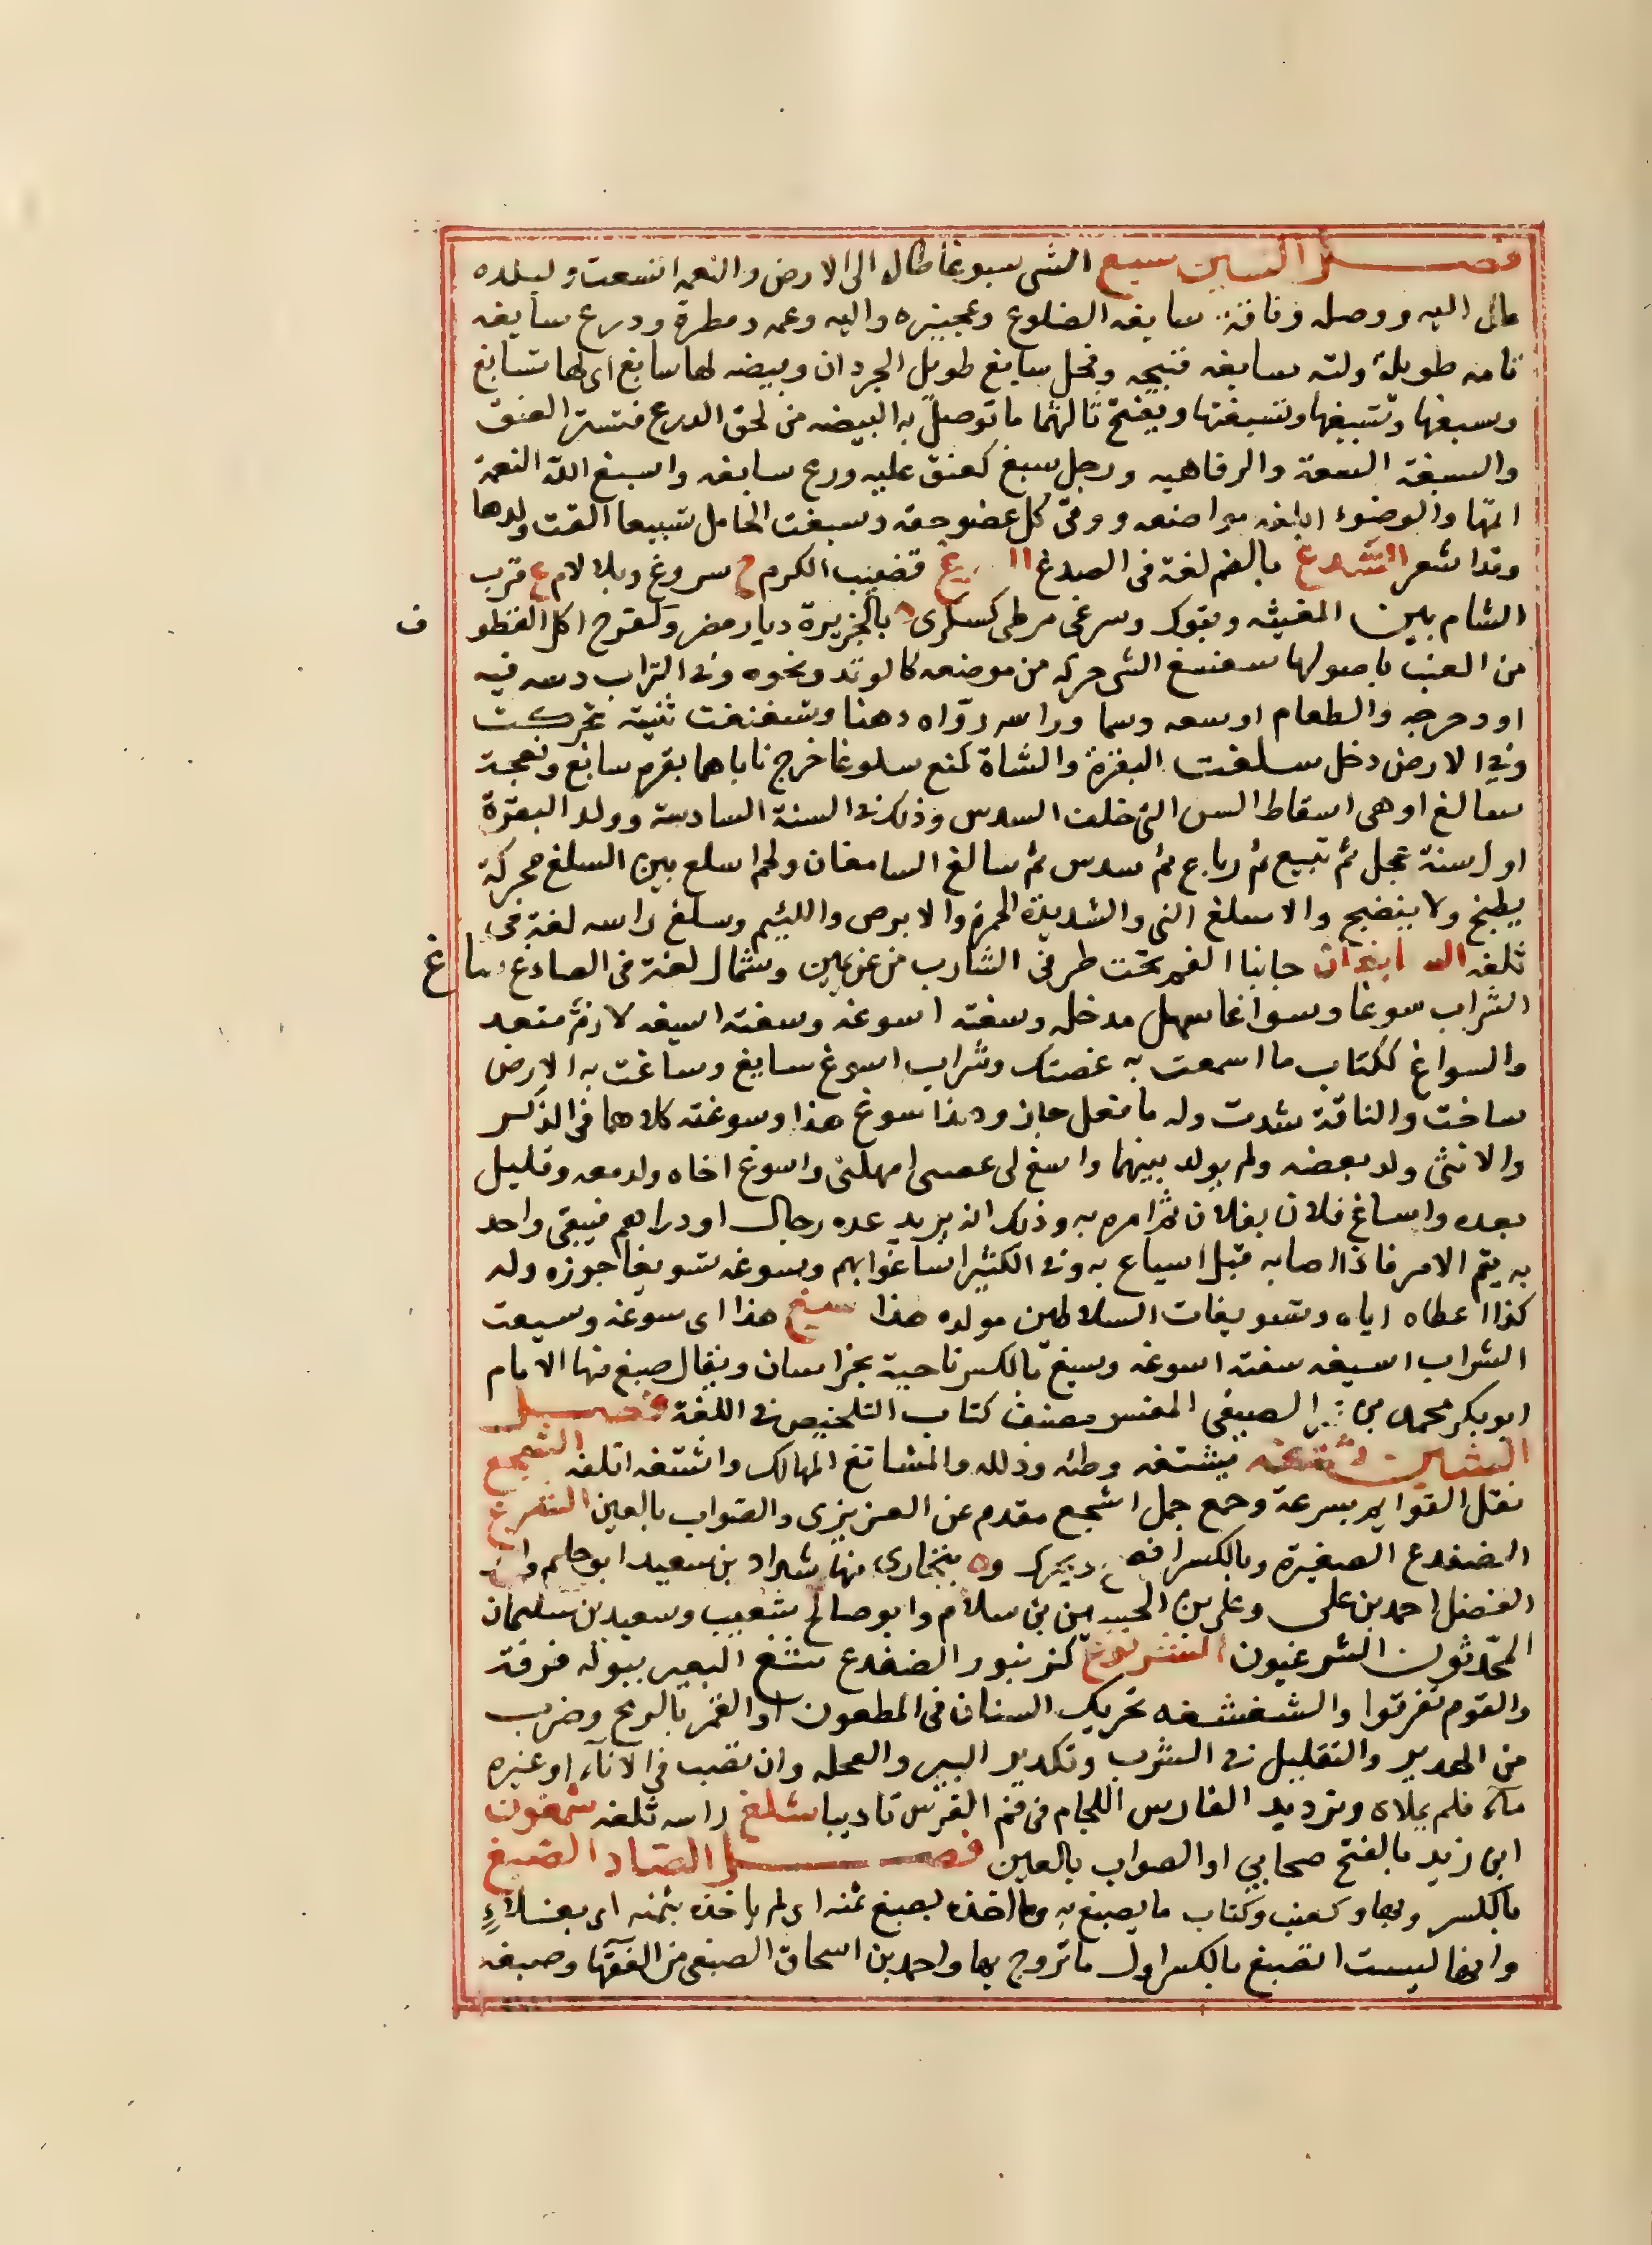 فصل السين سبغ الشى سبوغا طال الى الارض والنعمه اتسعت ولبلده
مال اليه ووصله وناقة سابغه الضلوع وعجيزه واليه وعمه ومطرة ودرع سابغه
تامه طويلة ولثه سابغه قبيحه وفحل سابغ طويل الجردان وبيضه لها سابغ اى لها تسابغ
وسبغها وتسبيغها وتسبغتها ويفتح ثالثهما ما توصل به البيضه من لحق الدرع فتستر العنق
والسبغة السعة والرفاهيه ورجل سبغ كعنق عليه درع سابغه واسبغ الله النعمة
اتمها والوضوء ابلغه مواضعه ووفى كل عضو حقه وسبغت الحامل تسبيغا القت ولدها
وقد اشعر السدغ بالضم لغة فى الصدغ قضيب الكرم ج سروغ وبلا لام ع قرب
الشام بين المغيثه وتبوك وسرغى مرطى كسكرى ه بالجزيرة ديار مضر وكفرح اكل القطوف
من العنب باصولها سغسغ الشى حركه من موضعه كالوتد ونحوه وفى التراب دسه فيه
او دحرجه والطعام اوسعه دسما وراسه روّاه دهنا وتسغسغت ثنيته تحركت
وفى الارض دخل سلغت البقرة والشاة كمنع سلوغا خرج ناباهما بقره سالغ ونعجة
سالغ او هى اسقاط السن التى خلف السدس وذلك فى السنة السادسة وولد البقرة
اول سنة عجل ثم تبيع ثم رباع ثم سدس ثم سالغ السامغان ولحم اسلغ بين السلغ محركة
يطبخ ولا ينضج والاسلغ النى والشديد الحمرة والابرص واللئيم وسلغ راسه لغة فى
ثلغه جانبا الفم تحت طرفى الشارب من عن يمين وشمال لغة فى الصادغ ساغ
الشراب سوغا وسواغا سهل مدخله وسغته اسوغه وسغته اسيغه لازم متعد
والسواغ ككتاب ما اسمعت به غصتك وشراب اسوغ سايغ وساغت به الارض
ساخت والناقة شدت وله ما فعل جاز وهذا سوغ هذا وسوغته كلاهما فى الذكر
والانثى ولد بعضه ولم يولد بينهما واسغ لى غصى امهلنى واسوغ اخاه ولد معه وقليل
بعده واساغ فلان بفلان تم امره به وذلك انه يريد عده رجال او دراهم فيبقى واحد
به يتم الامر فاذا اصابه قيل اسياغ به وفى الكثير اساغوا بهم وسوغه تسويغا جوزه وله
كذا اعطاه اياه وتسويغات السلاطين مولده هذا سيغ هذا اى سوغه وسيغت
الشراب اسيغه سغته اسوغه وسيغ بالكسر ناحية بخراسان ويقال صيغ منها الامام
ابو بكر محمد بن الصيغى المفسر مصنف كتاب التلخيص فى اللغة فصل
الشين شتغه يشتغه وطئه وذلله والمشاتغ المهالك واشتغه اتلفه الشجغ
نقل القوايم بسرعة وجمع جمل اشجع مقدم عن العزيزى والصواب بالعين الشرغ
الضفدع الصغيرة وبالكسر افصح ويحرك وه ببخارى منها شداد بن سعيد ابو حكم
الفضل احمد بن على وعلى بن الحسين بن سلام وابو صالح شعيب وسعيد بن سليمان
المحدثون الشرغيون الشرنوغ كزنبور الضفدع شغ البعير ببوله فرقه
والقوم تفرقوا والشغشغه تحريك السنان فى المطعون او الغمز بالرمح وضرب
من الهدير والتقليل فى الشرب وتكدير البير والعجله وان تصب فى الاناء او غيره
ماء فلم يملاه وترديد الفارس اللجام فى فم الفرس تاديبا شلغ راسه ثلغه شمغون
ابن زيد بالفتح صحابي او الصواب بالعين فصل الصاد الصبغ
بالكسر وبهاء وكعنب وكتاب ما يصبغ به وما اخذه بصبغ ثمنه اى لم ياخذه بثمنه اى بغلاء
وانها ليست الصبغ بالكسر اول ما تزوج بها واحمد بن اسحاق الصبغى من الفقها وصبغه